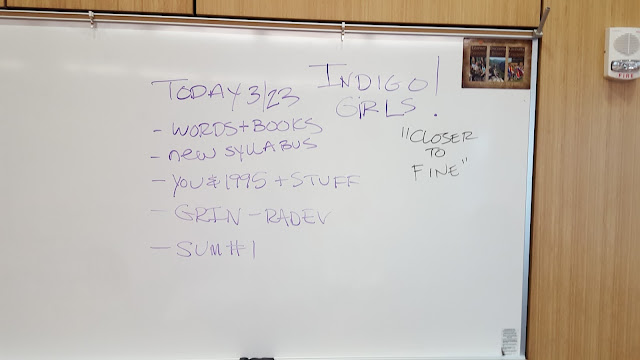 TODAY 3/23
- WORDS + BOOKS
- new SYLLABUS
- YOU & 1995 + STUFF
- GRIN - RADEV
- SUM #1
INDIGO
GIRLS!
"CLOSER
TO
FINE"
FIRE